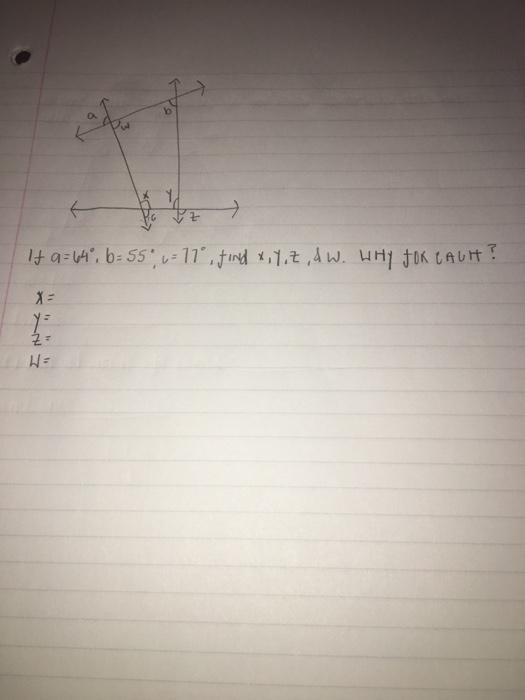 a w b
x y
c z
If a=64°, b=55°, c=77°, find x, y, z, & w. WHY FOR EACH?
x=
y=
z=
w=